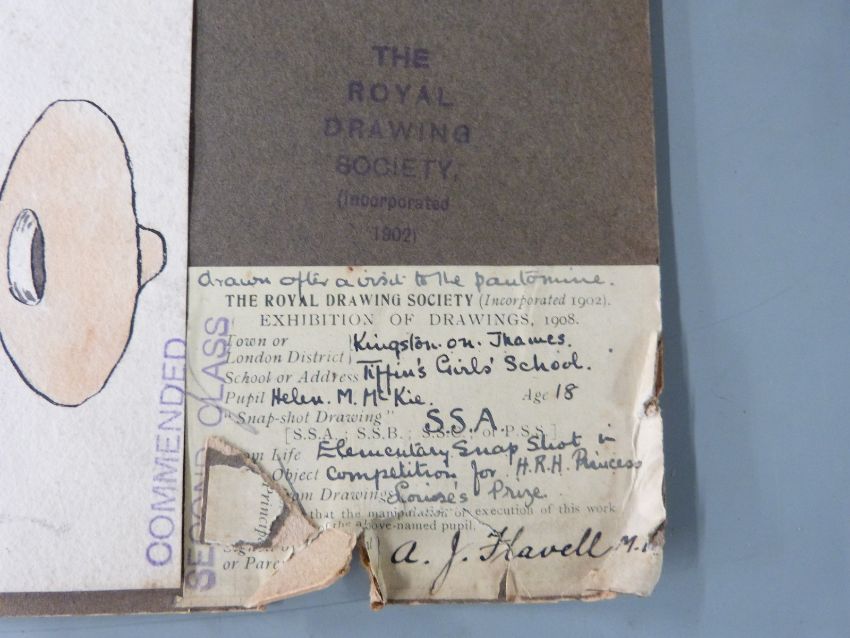 THE
ROYAL
DRAWING
SOCIETY,
(Incorporated
1902)
drawn after a visit to the pantomine.
THE ROYAL DRAWING SOCIETY (Incorporated 1902).
EXHIBITION OF DRAWINGS, 1908.
Town or
London District) Kingston-on-Thames.
School or Address Tiffin's Girls' School.
Pupil Helen. M. McKie. Age 18
"Snap-shot Drawing" S.S.A.
[S.S.A., S.S.B., S.S.C., or P.S.S.]
Life Elementary Snap Shot in
Object Competition for H.R.H. Princess
Drawings Louise's Prize.
that the manipulation or execution of this work
of the above-named pupil.
or A. J. Flavell
COMMENDED
SECOND CLASS